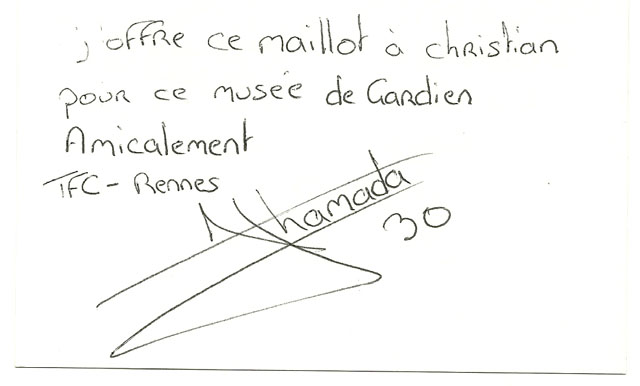 j'offre ce maillot à christian
pour ce musée de Gardien
Amicalement
TFC - Rennes
hamada
30